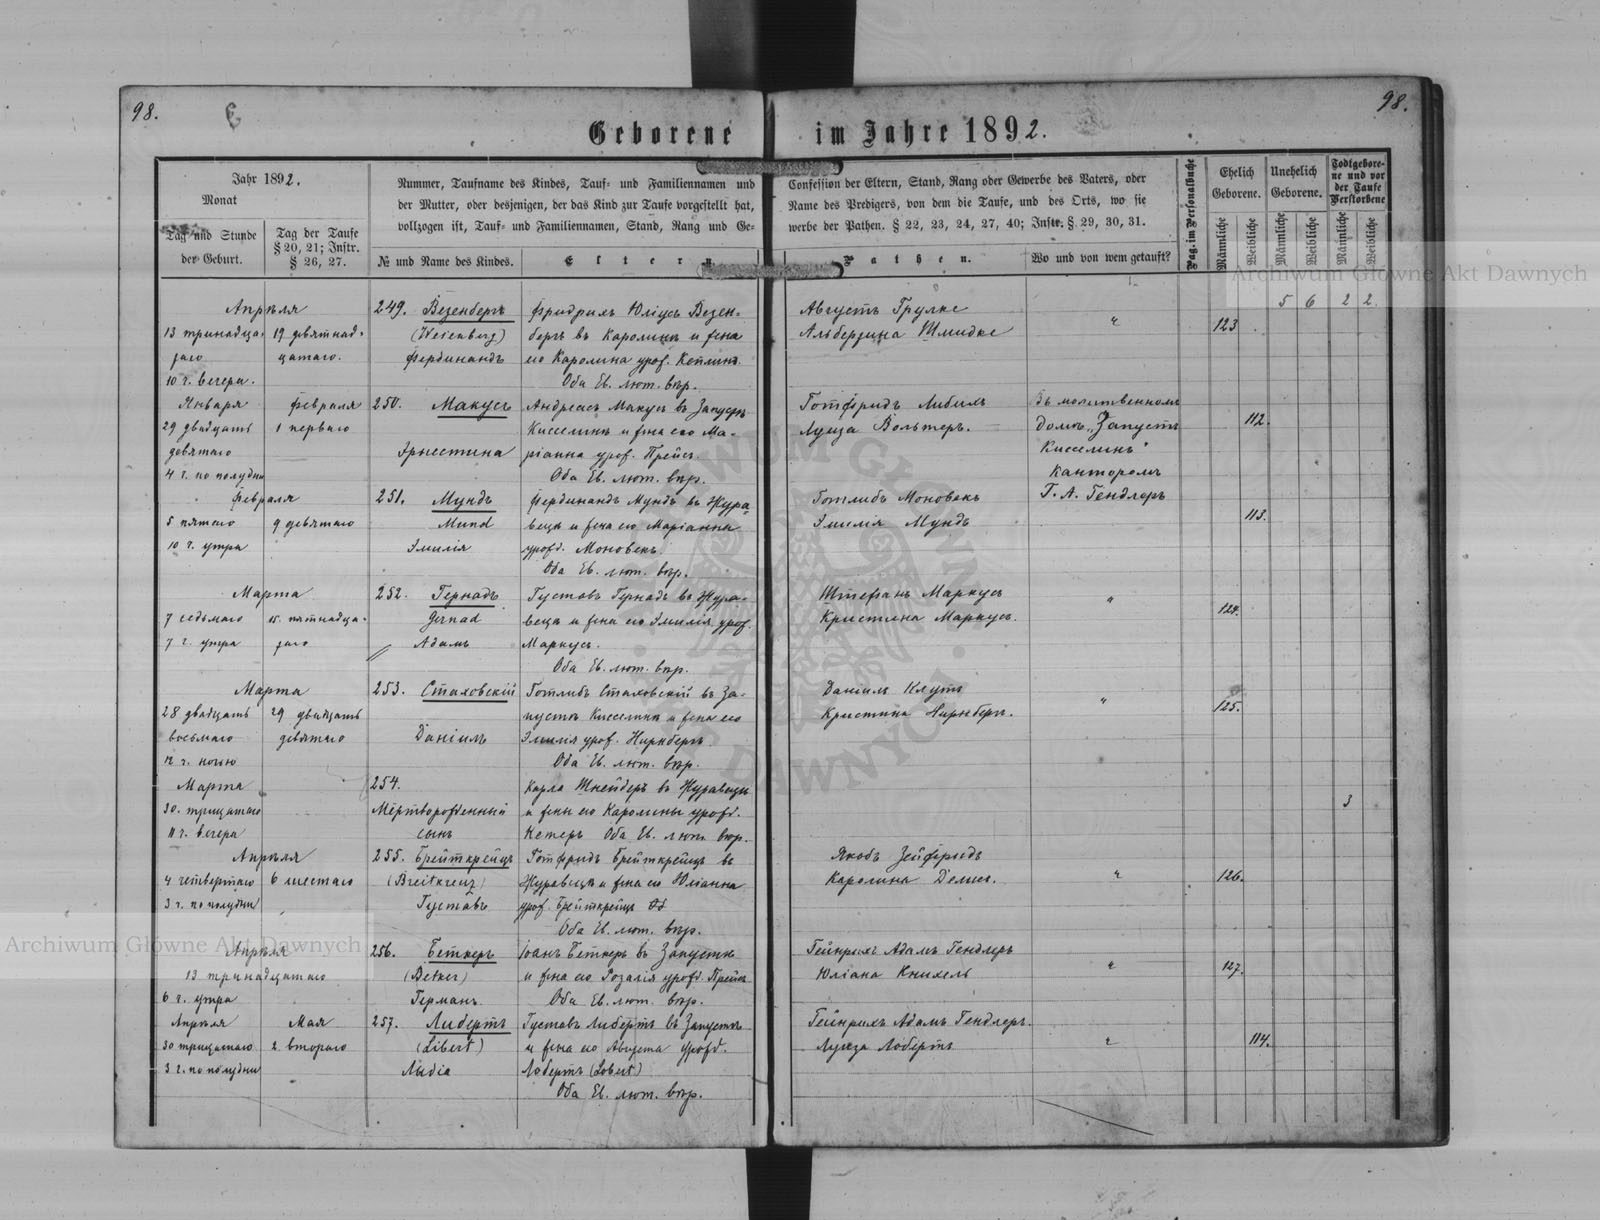 98.
98.
Geborene im Jahre 1892.
Jahr 1892.
Monat
Tag und Stunde
der Geburt.
Tag der Taufe
§ 20, 21; Instr.
§ 26, 27.
Nummer, Taufname des Kindes, Tauf- und Familiennamen und
der Mutter, oder desjenigen, der das Kind zur Taufe vorgestellt hat,
vollzogen ist, Tauf- und Familiennamen, Stand, Rang und Ge-
№ und Name des Kindes.
Eltern
Confession der Eltern, Stand, Rang oder Gewerbe des Vaters, oder
Name des Predigers, von dem die Taufe, und des Orts, wo sie
werbe der Pathen. § 22, 23, 24, 27, 40; Instr. § 29, 30, 31.
Pathen.
Wo und von wem getauft?
Pag. im Personalbuche
Ehelich
Geborene.
Unehelich
Geborene.
Todtgebore-
ne und vor
der Taufe
Verstorbene
Männliche
Weibliche
Männliche
Weibliche
Männliche
Weibliche
5 6 2 2
Апрѣля
13 тринадца-
таго
10 ч. вечера.
19 девятнад-
цатаго.
249. Везенбергъ
(Weisenberg)
Фердинандъ
Фридрихъ Юліусъ Везен-
бергъ въ Каролинѣ и жена
его Каролина урож. Кеплинъ
Оба Ев. лют. вѣр.
Августъ Грулке
Альбертина Шмидке
"
123
Января
29 двадцать
девятаго
4 ч. по полудни
Февраля
1 перваго
250. Макусъ
Эрнестина
Андреасъ Макусъ въ Запустѣ
Кисселинѣ и жена его Ма-
ріанна урож. Прейсъ
Оба Ев. лют. вѣр.
Готфридъ Либихъ
Луиза Вольтеръ.
Въ молитвенномъ
домѣ „Запустъ
Кисселинъ"
канторомъ
Г. А. Гендлеръ
112.
Февраля
5 пятаго
10 ч. утра
9 девятаго
251. Мундъ
Mund
Эмилія
Фердинандъ Мундъ въ Жура-
вецѣ и жена его Маріанна
урожд. Моновекъ.
Оба Ев. лют. вѣр.
Готлибъ Моновекъ
Эмилія Мундъ
113.
Марта
7 седьмаго
7 ч. утра
15. пятнадца-
таго
252. Гернадъ
Gernad
Адамъ
Густавъ Гернадъ въ Жура-
вецѣ и жена его Эмилія урож.
Маркусъ.
Оба Ев. лют. вѣр.
Штефанъ Маркусъ
Кристина Маркусъ.
"
124.
Марта
28 двадцать
восьмаго
12 ч. ночью
29 двадцать
девятаго
253. Стаховскій
Даніилъ
Готлибъ Стаховскій въ За-
пустѣ Кисселинѣ и жена его
Эмилія урож. Нирнбергъ
Оба Ев. лют. вѣр.
Даніилъ Клутъ
Кристина Нирнбергъ.
"
125.
Марта
30. тридцатаго
11 ч. вечера
254.
Мертворожденный
сынъ
Карла Шнейдеръ въ Журавецѣ
и жены его Каролины урожд.
Кетеръ Оба Ев. лют. вѣр.
3
Апрѣля
4 четвертаго
3 ч. по полудни
6 шестаго
255. Брейткрейцъ
(Breitkreuz)
Густавъ
Готфридъ Брейткрейцъ въ
Журавецѣ и жена его Юліанна
урож. Брейткрейцъ
Оба Ев. лют. вѣр.
Якобъ Зейфридъ
Каролина
"
126.
Апрѣля
13 тринадцатаго
6 ч. утра
256. Беткеръ
(Betker)
Германъ.
Іоанъ Беткеръ въ Запустѣ
и жена его Розалія урожд. Прейсъ
Оба Ев. лют. вѣр.
Гейнрихъ Адамъ Гендлеръ
Юліана Книхель
"
127.
Апрѣля
30 тридцатаго
3 ч. по полудни
Мая
2 втораго
257. Либертъ
(Libert)
Лидія
Густавъ Либертъ въ Запустѣ
и жена его Августа урожд.
Лобертъ (Lobert)
Оба Ев. лют. вѣр.
Гейнрихъ Адамъ Гендлеръ.
Луиза Лобертъ
"
114.
Archiwum Główne Akt Dawnych
Archiwum Główne Akt Dawnych